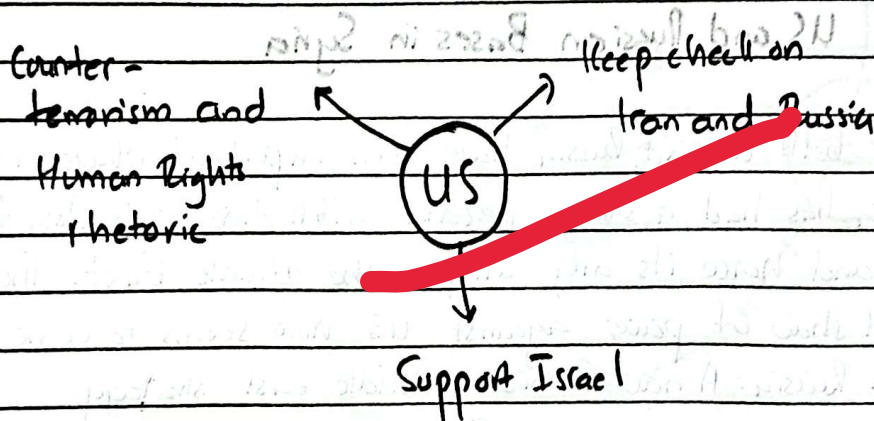 Counter-
terrorism and
Human Rights
rhetoric
Keep check on
Iran and Russia
US
Support Israel